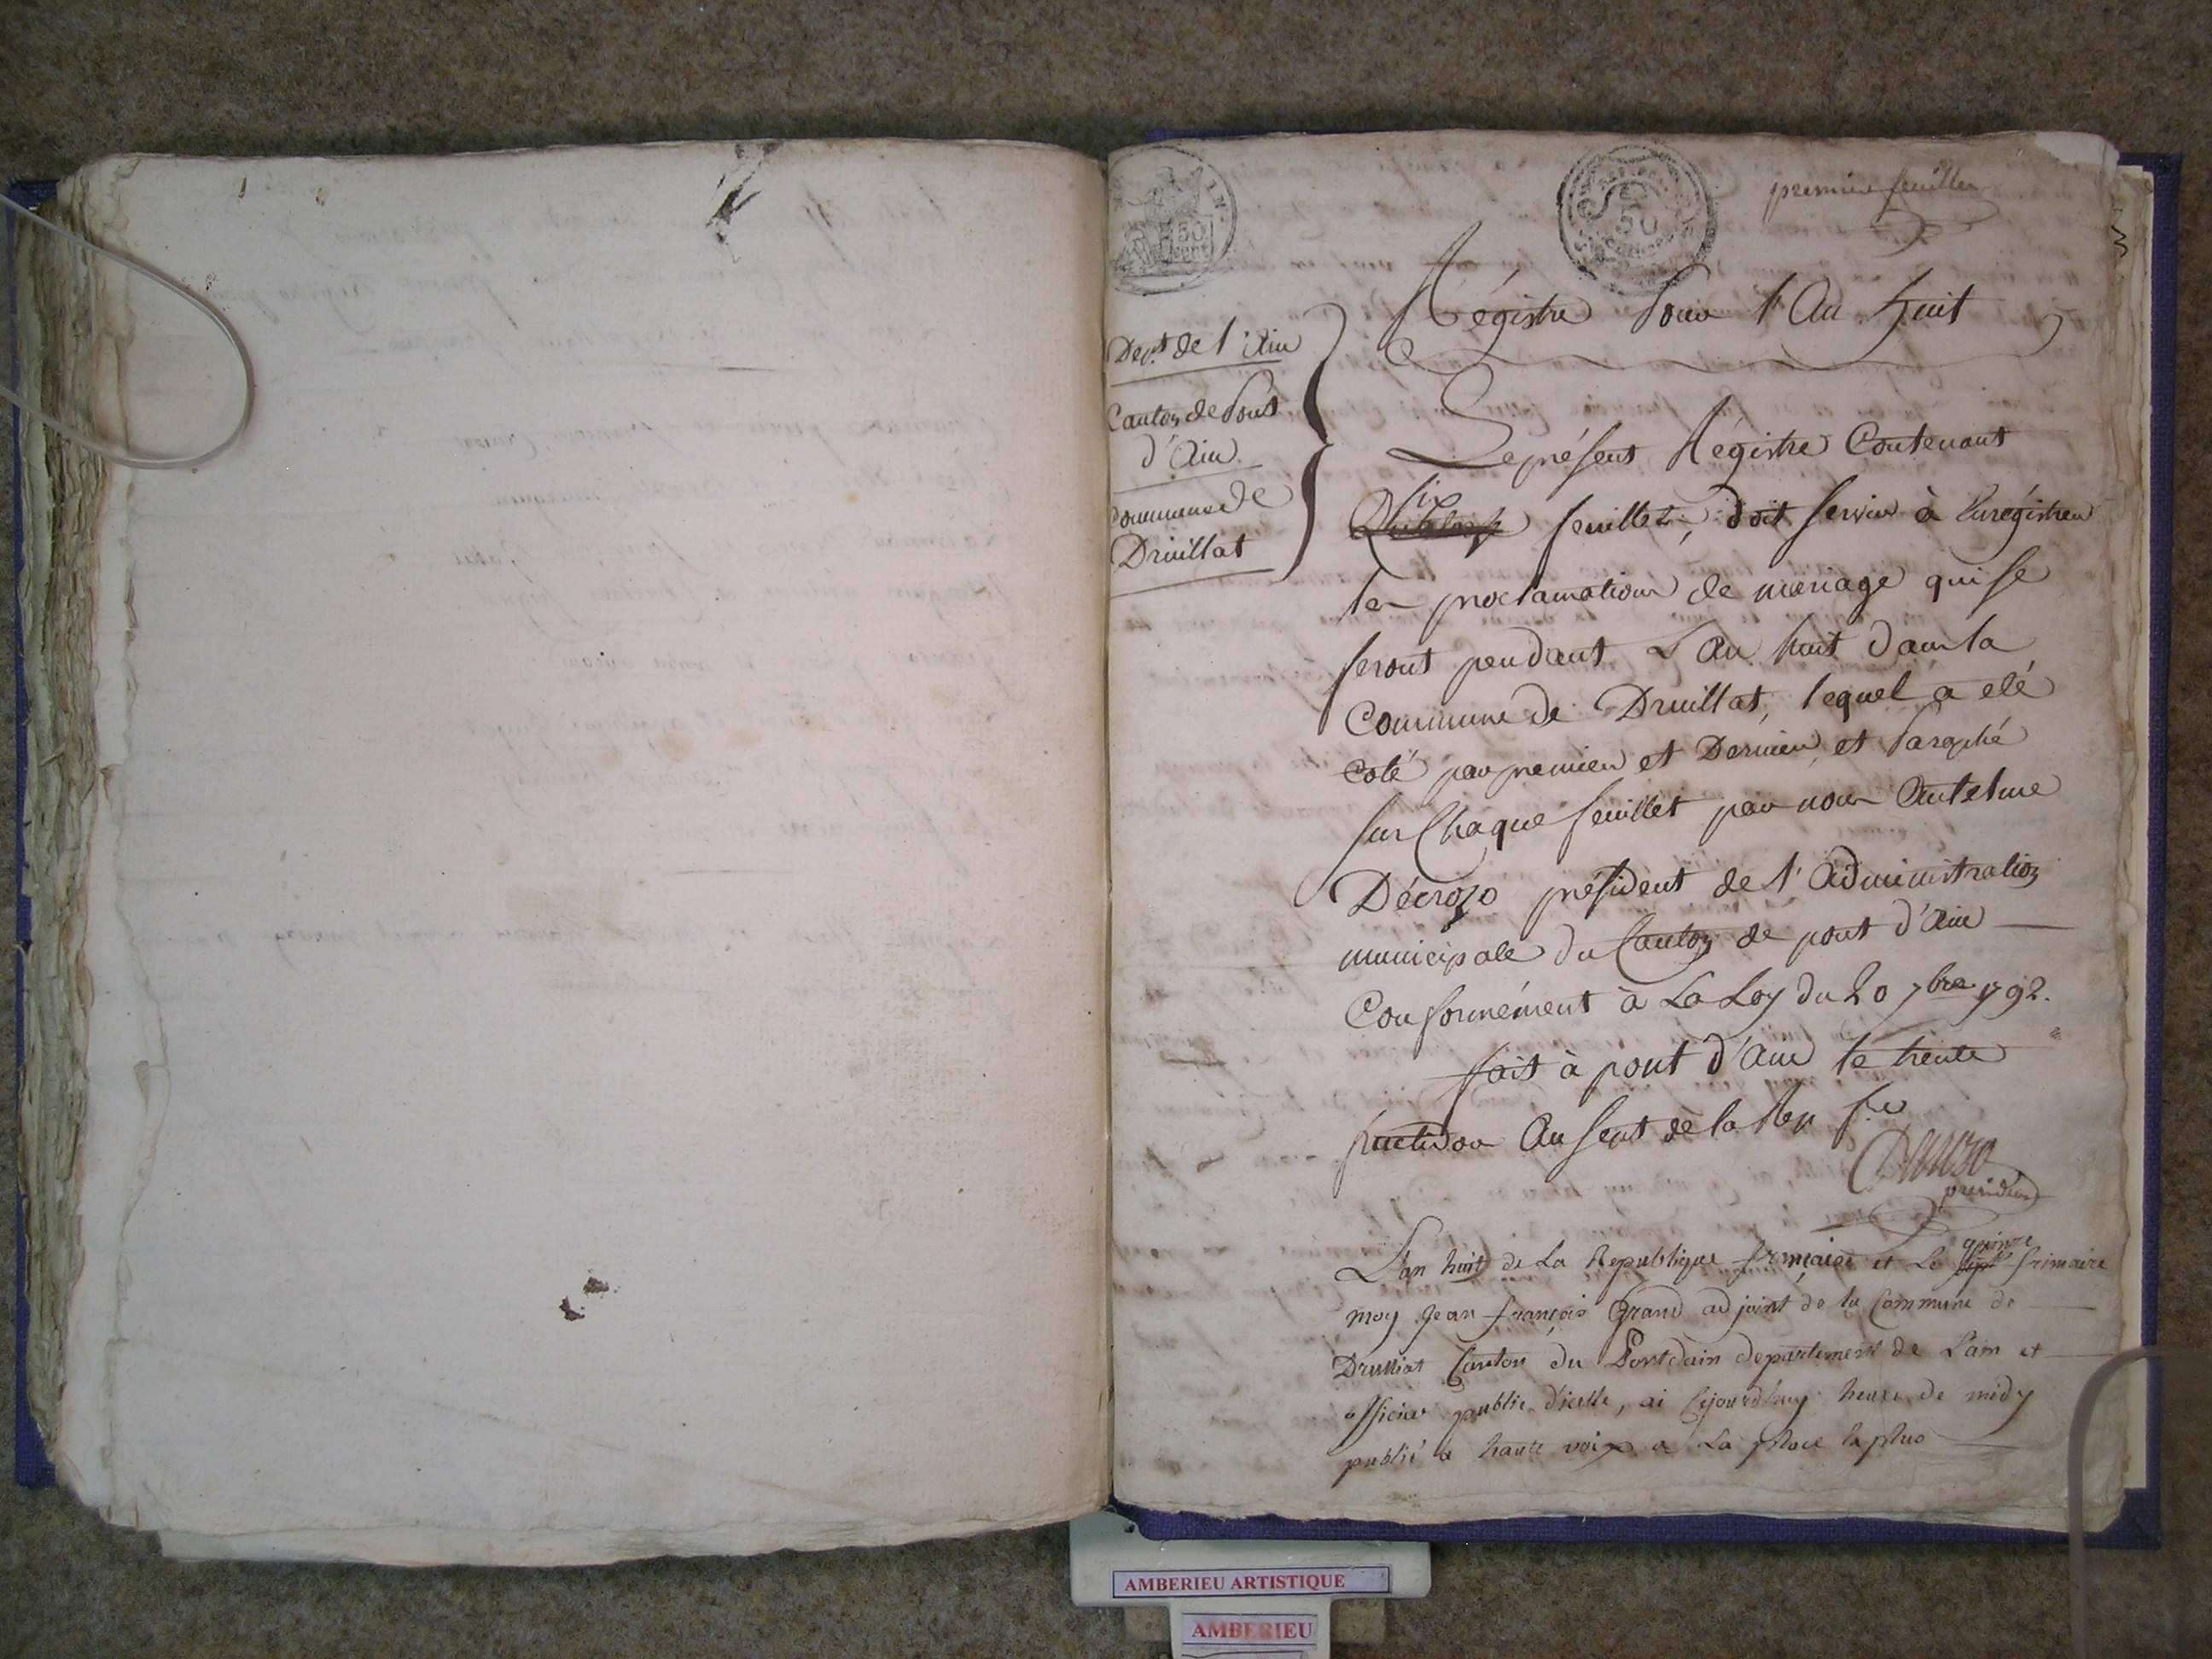 premier feuillet
Dept. de l'Ain
Canton de Pont
d'Ain
Commune de
Druillat
Régistre Pour l'An huit
Le présent Régistre Contenant
six
feuillets, doit servir à Enrégistrer
les proclamations de mariage qui se
feront pendant L'An huit dans la
Commune de Druillat, lequel a eté
coté par premier et Dernier, et Paraphé
sur Chaque feuillet par nous Antelme
Décrozo président de l'Administration
municipale du Canton de pont d'Ain
Conformément à La Loy du 20 7bre 1792.
fait à pont d'Ain le trente
fructidor An sept de la Rep. f.se
Decrozo
president
quinze
L'an huit de La Republique frnçaise et Le sept frimaire
moy Jean françois Grand adjoint de la Commune de
Druillat Canton du Pontdain departement de Lain et
officier public d'icelle, ai Cejourd'huy heure de midy
publié a haute voix a La place la plus
50
cent
50
AMBERIEU ARTISTIQUE
AMBERIEU